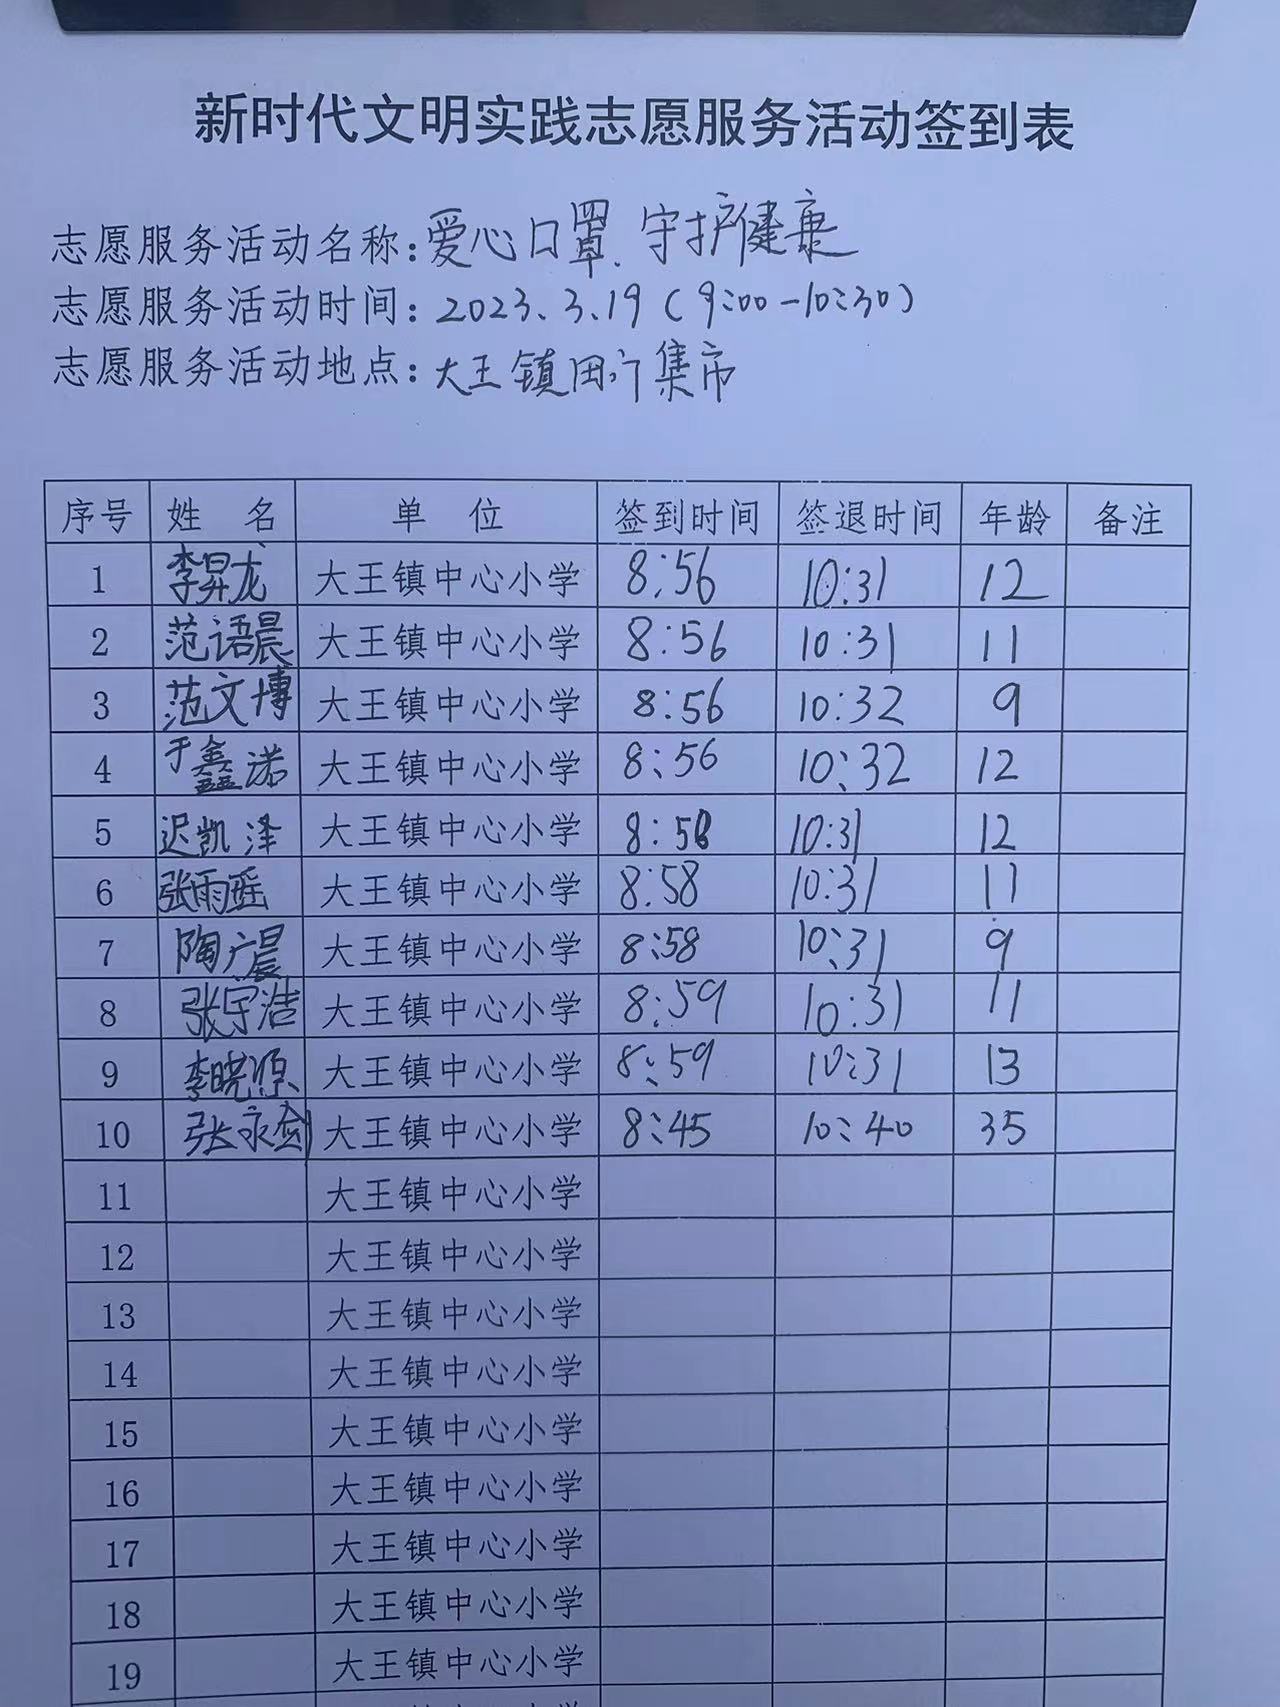 新时代文明实践志愿服务活动签到表
志愿服务活动名称:爱心口罩.守护健康
志愿服务活动时间:2023.3.19(9:00-10:30)
志愿服务活动地点:大王镇田门集市
序号 姓 名 单 位 签到时间 签退时间 年龄 备注
1 李昇龙 大王镇中心小学 8:56 10:31 12
2 范语晨 大王镇中心小学 8:56 10:31 11
3 范文博 大王镇中心小学 8:56 10:32 9
4 于鑫诺 大王镇中心小学 8:56 10:32 12
5 迟凯泽 大王镇中心小学 8:56 10:31 12
6 张雨瑶 大王镇中心小学 8:58 10:31 11
7 陶广晨 大王镇中心小学 8:58 10:31 9
8 张宇洁 大王镇中心小学 8:59 10:31 11
9 李晓源 大王镇中心小学 8:59 10:31 13
10 张永剑 大王镇中心小学 8:45 10:40 35
11 大王镇中心小学
12 大王镇中心小学
13 大王镇中心小学
14 大王镇中心小学
15 大王镇中心小学
16 大王镇中心小学
17 大王镇中心小学
18 大王镇中心小学
19 大王镇中心小学